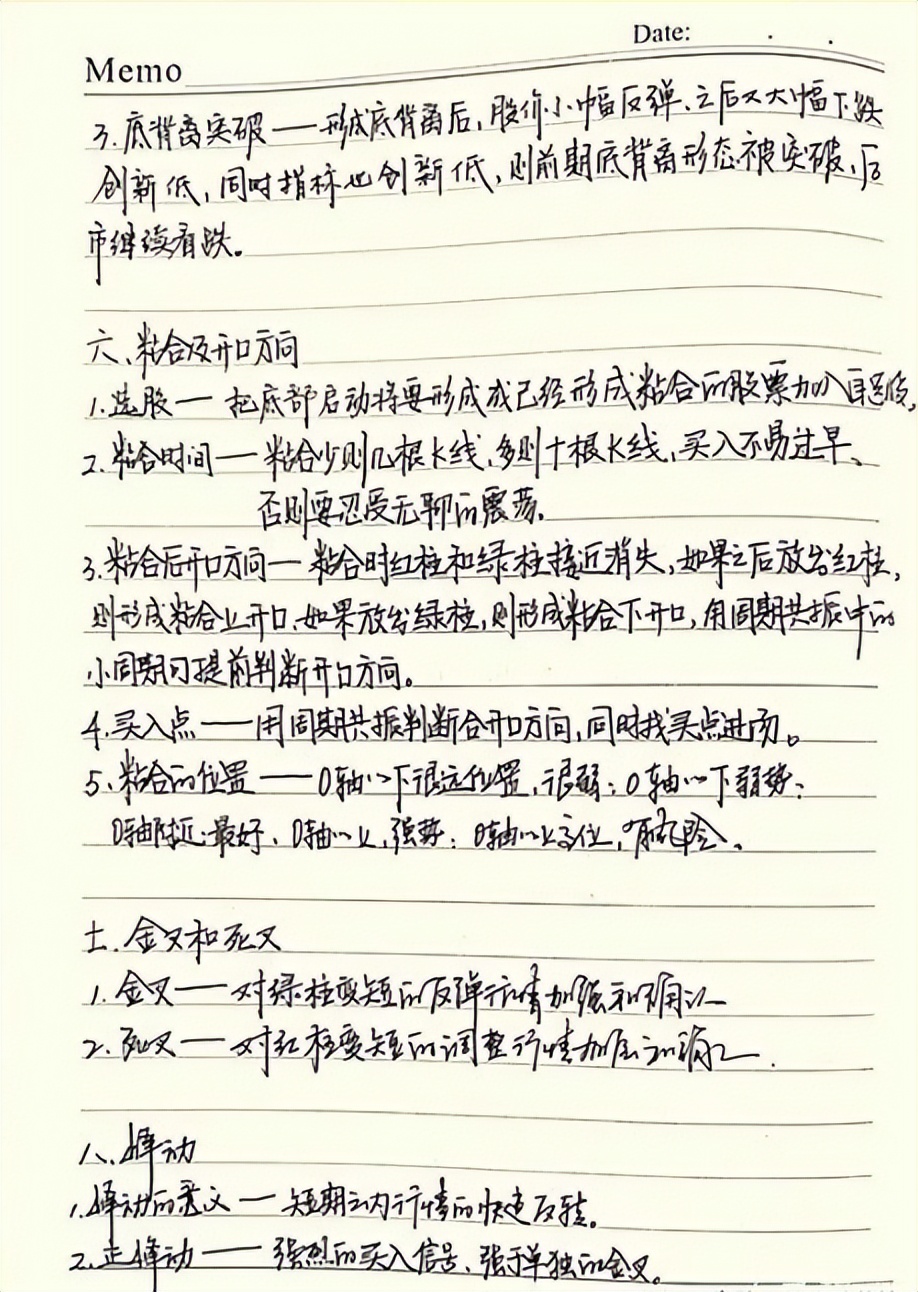 Date: . .
Memo
3. 底背离突破——形成底背离后,股价小幅反弹、之后又大幅下跌
创新低,同时指标也创新低,则前期底背离形态被突破,后
市继续看跌。
六、粘合及开口方向
1. 选股—把底部启动将要形成或已经形成粘合的股票加入自选股,
2. 粘合时间——粘合少则几根K线,多则十根K线,买入不易过早、
否则要忍受无聊的震荡.
3. 粘合后开口方向—粘合时红柱和绿柱接近消失,如果之后放出红柱,
则形成粘合上开口、如果放出绿柱,则形成粘合下开口,用周期共振中的
小周期可提前判断开口方向。
4. 买入点——用周期共振判断合开口方向,同时找买点进场。
5. 粘合的位置——0轴以下很远位置,很弱;0轴以下弱势;
0轴附近:最好,0轴以上,强势;0轴以上高位,有风险、
七. 金叉和死叉
1. 金叉——对绿柱变短的反弹行情加强和确认
2. 死叉——对红柱变短的调整行情加强和确认.
八、
1. 动的意义—短期之内行情的快速反转。
2. 正 动——强烈的买入信号、强于单独的金叉。